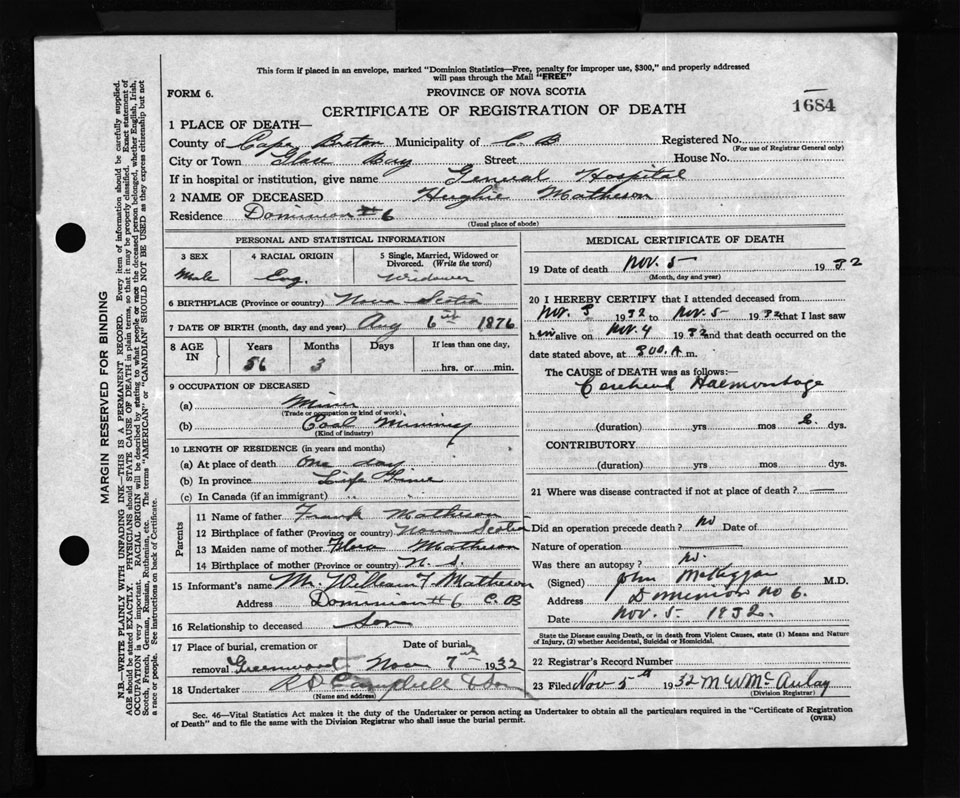 This form if placed in an envelope, marked "Dominion Statistics—Free, penalty for improper use, $300," and properly addressed
will pass through the Mail "FREE"
FORM 6.
PROVINCE OF NOVA SCOTIA
CERTIFICATE OF REGISTRATION OF DEATH
1684
1 PLACE OF DEATH—
County of Cape Breton Municipality of C. B Registered No.
(For use of Registrar General only)
City or Town Glace Bay Street House No.
If in hospital or institution, give name General Hospital
2 NAME OF DECEASED Hughie Matheson
Residence Dominion #6
(Usual place of abode)
PERSONAL AND STATISTICAL INFORMATION
3 SEX 4 RACIAL ORIGIN 5 Single, Married, Widowed or Divorced. (Write the word)
Male Eng. Widower
6 BIRTHPLACE (Province or country) Nova Scotia
7 DATE OF BIRTH (month, day and year) Aug 6th 1876
8 AGE IN Years Months Days If less than one day,
56 3 hrs. or min.
9 OCCUPATION OF DECEASED
(a) Miner
(Trade or occupation or kind of work)
(b) Coal Mining
(Kind of industry)
10 LENGTH OF RESIDENCE (in years and months)
(a) At place of death one day
(b) In province Life Time
(c) In Canada (if an immigrant) " "
Parents
11 Name of father Frank Matheson
12 Birthplace of father (Province or country) Nova Scotia
13 Maiden name of mother Flora Matheson
14 Birthplace of mother (Province or country) N. S.
15 Informant's name Mr. William F Matheson
Address Dominion #6 C. B
16 Relationship to deceased Son
17 Place of burial, cremation or Date of burial,
removal Greenwood Nov 7th 1932
18 Undertaker R D Campbell & Son
(Name and address)
MEDICAL CERTIFICATE OF DEATH
19 Date of death Nov. 5 1932
(Month, day and year)
20 I HEREBY CERTIFY that I attended deceased from
Nov. 3 1932 to Nov. 5 1932 that I last saw
him alive on Nov. 4 1932 and that death occurred on the
date stated above, at 8 00 A m.
The CAUSE of DEATH was as follows:
Haemorrhage
(duration) yrs mos 2. dys.
CONTRIBUTORY
(duration) yrs mos dys.
21 Where was disease contracted if not at place of death? —
Did an operation precede death? No Date of
Nature of operation —
Was there an autopsy? No.
(Signed) John M.D.
Address Dominion No 6.
Date Nov. 5 1932.
State the Disease causing Death, or in death from Violent Causes, state (1) Means and Nature
of Injury, (2) whether Accidental, Suicidal or Homicidal.
22 Registrar's Record Number
23 Filed Nov 5th 1932 M W McAulay
(Division Registrar)
Sec. 46—Vital Statistics Act makes it the duty of the Undertaker or person acting as Undertaker to obtain all the particulars required in the "Certificate of Registration
of Death" and to file the same with the Division Registrar who shall issue the burial permit. (OVER)
MARGIN RESERVED FOR BINDING
N.B.—WRITE PLAINLY WITH UNFADING INK—THIS IS A PERMANENT RECORD. Every item of information should be carefully supplied.
AGE should be stated EXACTLY. PHYSICIANS should STATE CAUSE OF DEATH in plain terms, so that it may be properly classified. Exact statement of
OCCUPATION is very important. RACIAL ORIGIN will be described by stating to what people or race the deceased person belonged, whether English, Irish,
Scotch, French, German, Russian, Ruthenian, etc. The terms "AMERICAN" or "CANADIAN" SHOULD NOT BE USED as they express citizenship but not
a race or people. See instructions on back of Certificate.